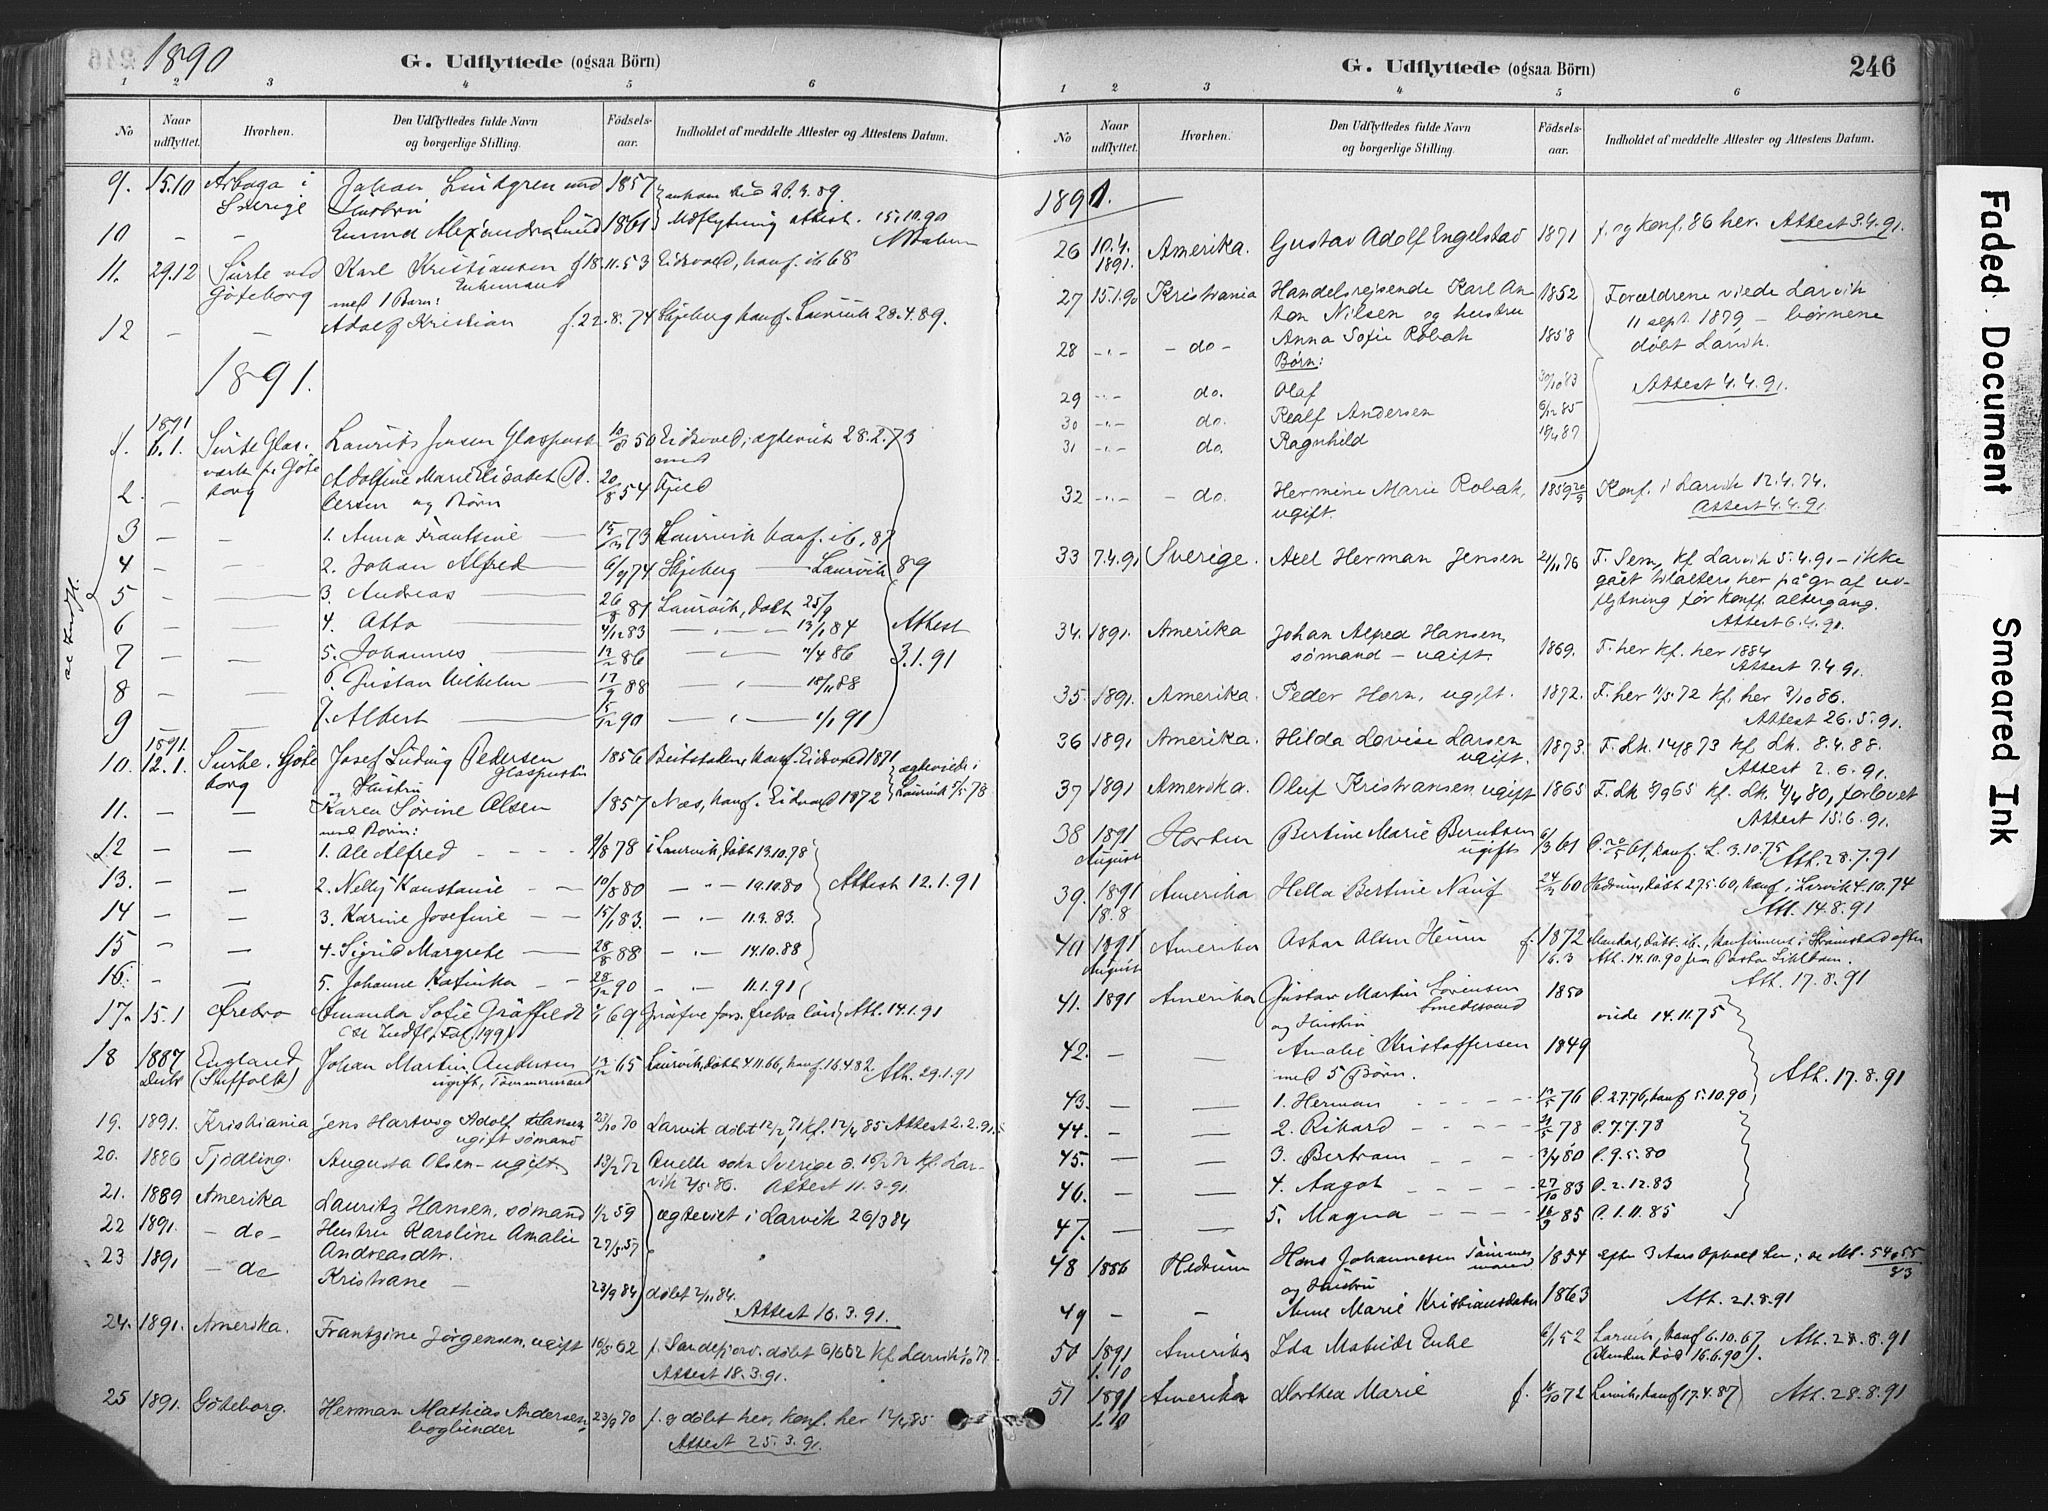 246
1890
G. Udflyttede (ogsaa Börn)
1 2 3 4 5 6
No Naar udflyttet. Hvorhen. Den Udflyttedes fulde Navn og borgerlige Stilling. Fødsels-aar. Indholdet af meddelte Attester og Attestens Datum.
9. 15.10 Arboga i Sverige Johan Lindgren med Hustru 1857 ankom hid 28.4.89.
10 - - Alexandra Lund 1861 Udflytning attest. 15.10.90
11. 29.12 Surte ved Göteborg Karl Kristiansen Enkemand f. 18.11.53 Eidsvold, konf. ib 68
med 1 Barn:
12 - - Adolf Kristian f. 22.8.74 Skjeberg konf. Laurvik 28.4.89.
1891.
1. 1891 6.1. Surte Glasværk p. Göteborg Laurits Jensen Glaspust 10/8 50 Eidsvold, ægteviet 28.2.73
med
2. - Adolfine Marie Elisabet og Börn 20/8 54 Fjeld
3 - - 1. Anna Frantsine 73 Laurvik konf. ib. 87
4 - - 2. Johan Alfred 6/9 74 Skjeberg — Laurvik 89
5 - - 3. Andreas 26/8 81 Laurvik, døbt 25/9
6 - - 4. Otto 4/12 83 - - 13/1 84 Attest
7 - - 5. Johannes 12/2 86 - - 11/4 86 3.1.91
8 - - 6. Gustav Vilhelm 17/9 88 - - 18/11 88
9 - - 7. Albert 15/12 90 - - 1/1 91
10. 1891. 12.1. Surte, Göteborg Josef Ludvig Pedersen Glaspuster 1856 konf. Eidsvold 1871
og Hustru
11. - - Karen Sörine Olsen 1857 Næs, konf. Eidsvold 1872 ægteviede i Laurvik 78
med Börn:
12 - - 1. Ole Alfred 9/8 78 i Laurvik, døbt 13.10.78
13. - - 2. Nelly Konstanse 10/8 80 - - 19.10.80 Attest 12.1.91
14 - - 3. Karine Josefine 15/1 83. - - 11.3.83.
15 - - 4. Sigrid Margrete 28/8 88 - - 14.10.88
16. - - 5. Johanne Katinka 28/12 90 - - 11.1.91
17. 15.1 Ørebro Amanda Sofie Gräffeldt 69 Att. 14.1.91
18 1887 England (Suffolk) Johan Martin Andersen ugift, Tømmermand 13/12 65 Laurvik, døbt 4.11.66, konf. 16.4.82. Att. 29.1.91
19. 1891. Kristiania Jens Hartvig Adolf Hansen ugift sømand 23/10 70 Larvik døbt 12/2 71 kf. 12/4 85 Attest 2.2.91.
20. 1886 Tjodling. Augusta Olsen - ugift 13/2 72 sokn Sverige kf. Larvik 2/5 86. Attest 11.3.91.
21. 1889 Amerika Lauritz Hansen, sømand 1/2 59
22 1891. - do - Hustru Karoline Amalie Andreasdtr. 27/5 57 ægteviet i Larvik 26/3 84
23 1891 - do Kristiane - 23/9 84 døbt 2/11 84.
Attest 16.3.91.
24. 1891. Amerika. Frantzine Jørgensen, ugift 16/5 62 f. Sandefjord, døbt 6/6 62 kf. Larvik
Attest 18.3.91.
25 1891. Göteborg. Herman Mathias Andersen, bogbinder 23/9 70 f. og døbt her, konf. her 12/4 85
Attest 25.3.91.
G. Udflyttede (ogsaa Börn)
246
1 2 3 4 5 6
No Naar udflyttet. Hvorhen. Den Udflyttedes fulde Navn og borgerlige Stilling. Fødsels-aar. Indholdet af meddelte Attester og Attestens Datum.
1891.
26 10.4. 1891. Amerika. Gustav Adolf Engelstad 1871 f. og konf. 86 her. Attest 3.4.91.
27 15.1.90 Kristiania Handelsrejsende Karl Anton Nilsen og hustru 1852 Forældrene viede Larvik 11 sept. 1879 - børnene døbt Larvik.
28 -"- - do - Anna Sofie Robak 1858
Børn:
29 -"- do. Olaf 30/10 83 Attest 4.4.91.
30 -"- do. Realf Andersen 6/12 85
31 -"- do. Ragnhild 19/4 87
32 -"- - do. Hermine Marie Robak, ugift. 1859 20/9 Konf. i Larvik 12.4.74.
Attest 4.4.91.
33 7.4.91 Sverige. Axel Herman Jensen 24/11 76 F. Sem, kf Larvik 5.4.91 - ikke
gået tilalters her på gr. af ud-
flytning før konff. altergang.
Attest 6.4.91.
34. 1891. Amerika Johan Alfred Hansen, sømand - ugift. 1869. F. her kf. her 1884
Attest 7.4.91.
35. 1891. Amerika. Peder Horn, ugift. 1872. F. her 11/5 72 kf. her 3/10 86.
Attest 26.5.91.
36 1891 Amerika. Hilda Lovise Larsen ugift. 1873. F. Lk. 14/8 73 kf Lk. 8.4.88.
Attest 2.6.91.
37 1891 Amerika. Oluf Kristiansen, ugift 1865 F. Lk 8/9 65 kf. Lk. 4/4 80, forlovet
Attest 15.6.91.
38 1891 August Horten Bertine Marie Berntsen ugift 6/3 61 D. 20/5 61, konf. L. 3.10.75 Att. 28.7.91
39. 1891 18.8 Amerika Bertine Nauf 24/2 60 Hedrum, døbt 27.5.60, konf. i Larvik 4.10.74
Att. 14.8.91
40 1891 August Amerika Oskar Olsen f. 1872 16.3 Mandal, døbt ib., konfirmeret i Strømstad efter
Att. 14.10.90 fra Pastor
Att. 17.8.91
41. 1891 Amerika Gustav Martin Sørensen Smedesvend 1850
og Hustru viede 14.11.75
42. - - Amalie Kristoffersen 1849
med 5 Børn. Att. 17.8.91
43. - - 1. Herman 76 D. 2.7.76, konf 5.10.90
44. - - 2. Rikard 78 D. 7.7.78
45. - - 3. Bertram 3/4 80 D. 9.5.80
46. - - 4. Aagot 27/10 83 D. 2.12.83
47. - - 5. Magna 16/9 85 D. 1.11.85
48 1886 Hedrum Hans Johannesen Tømmermand 1854 efter 3 Aars Ophold her; se
og Hustru
49 - - Anne Marie Kristiansdatter 1863 Att. 21.8.91
50 1891 1.10 Amerika Ida Matilde Enke 6/1 52 Larvik, konf 6.10.67 Att. 28.8.91
(Manden død 16.6.90).
51 1891 1.10 Amerika Dorthea Marie f. 72 Larvik, konf 17.4.87 Att. 28.8.91
Faded Document
Smeared Ink